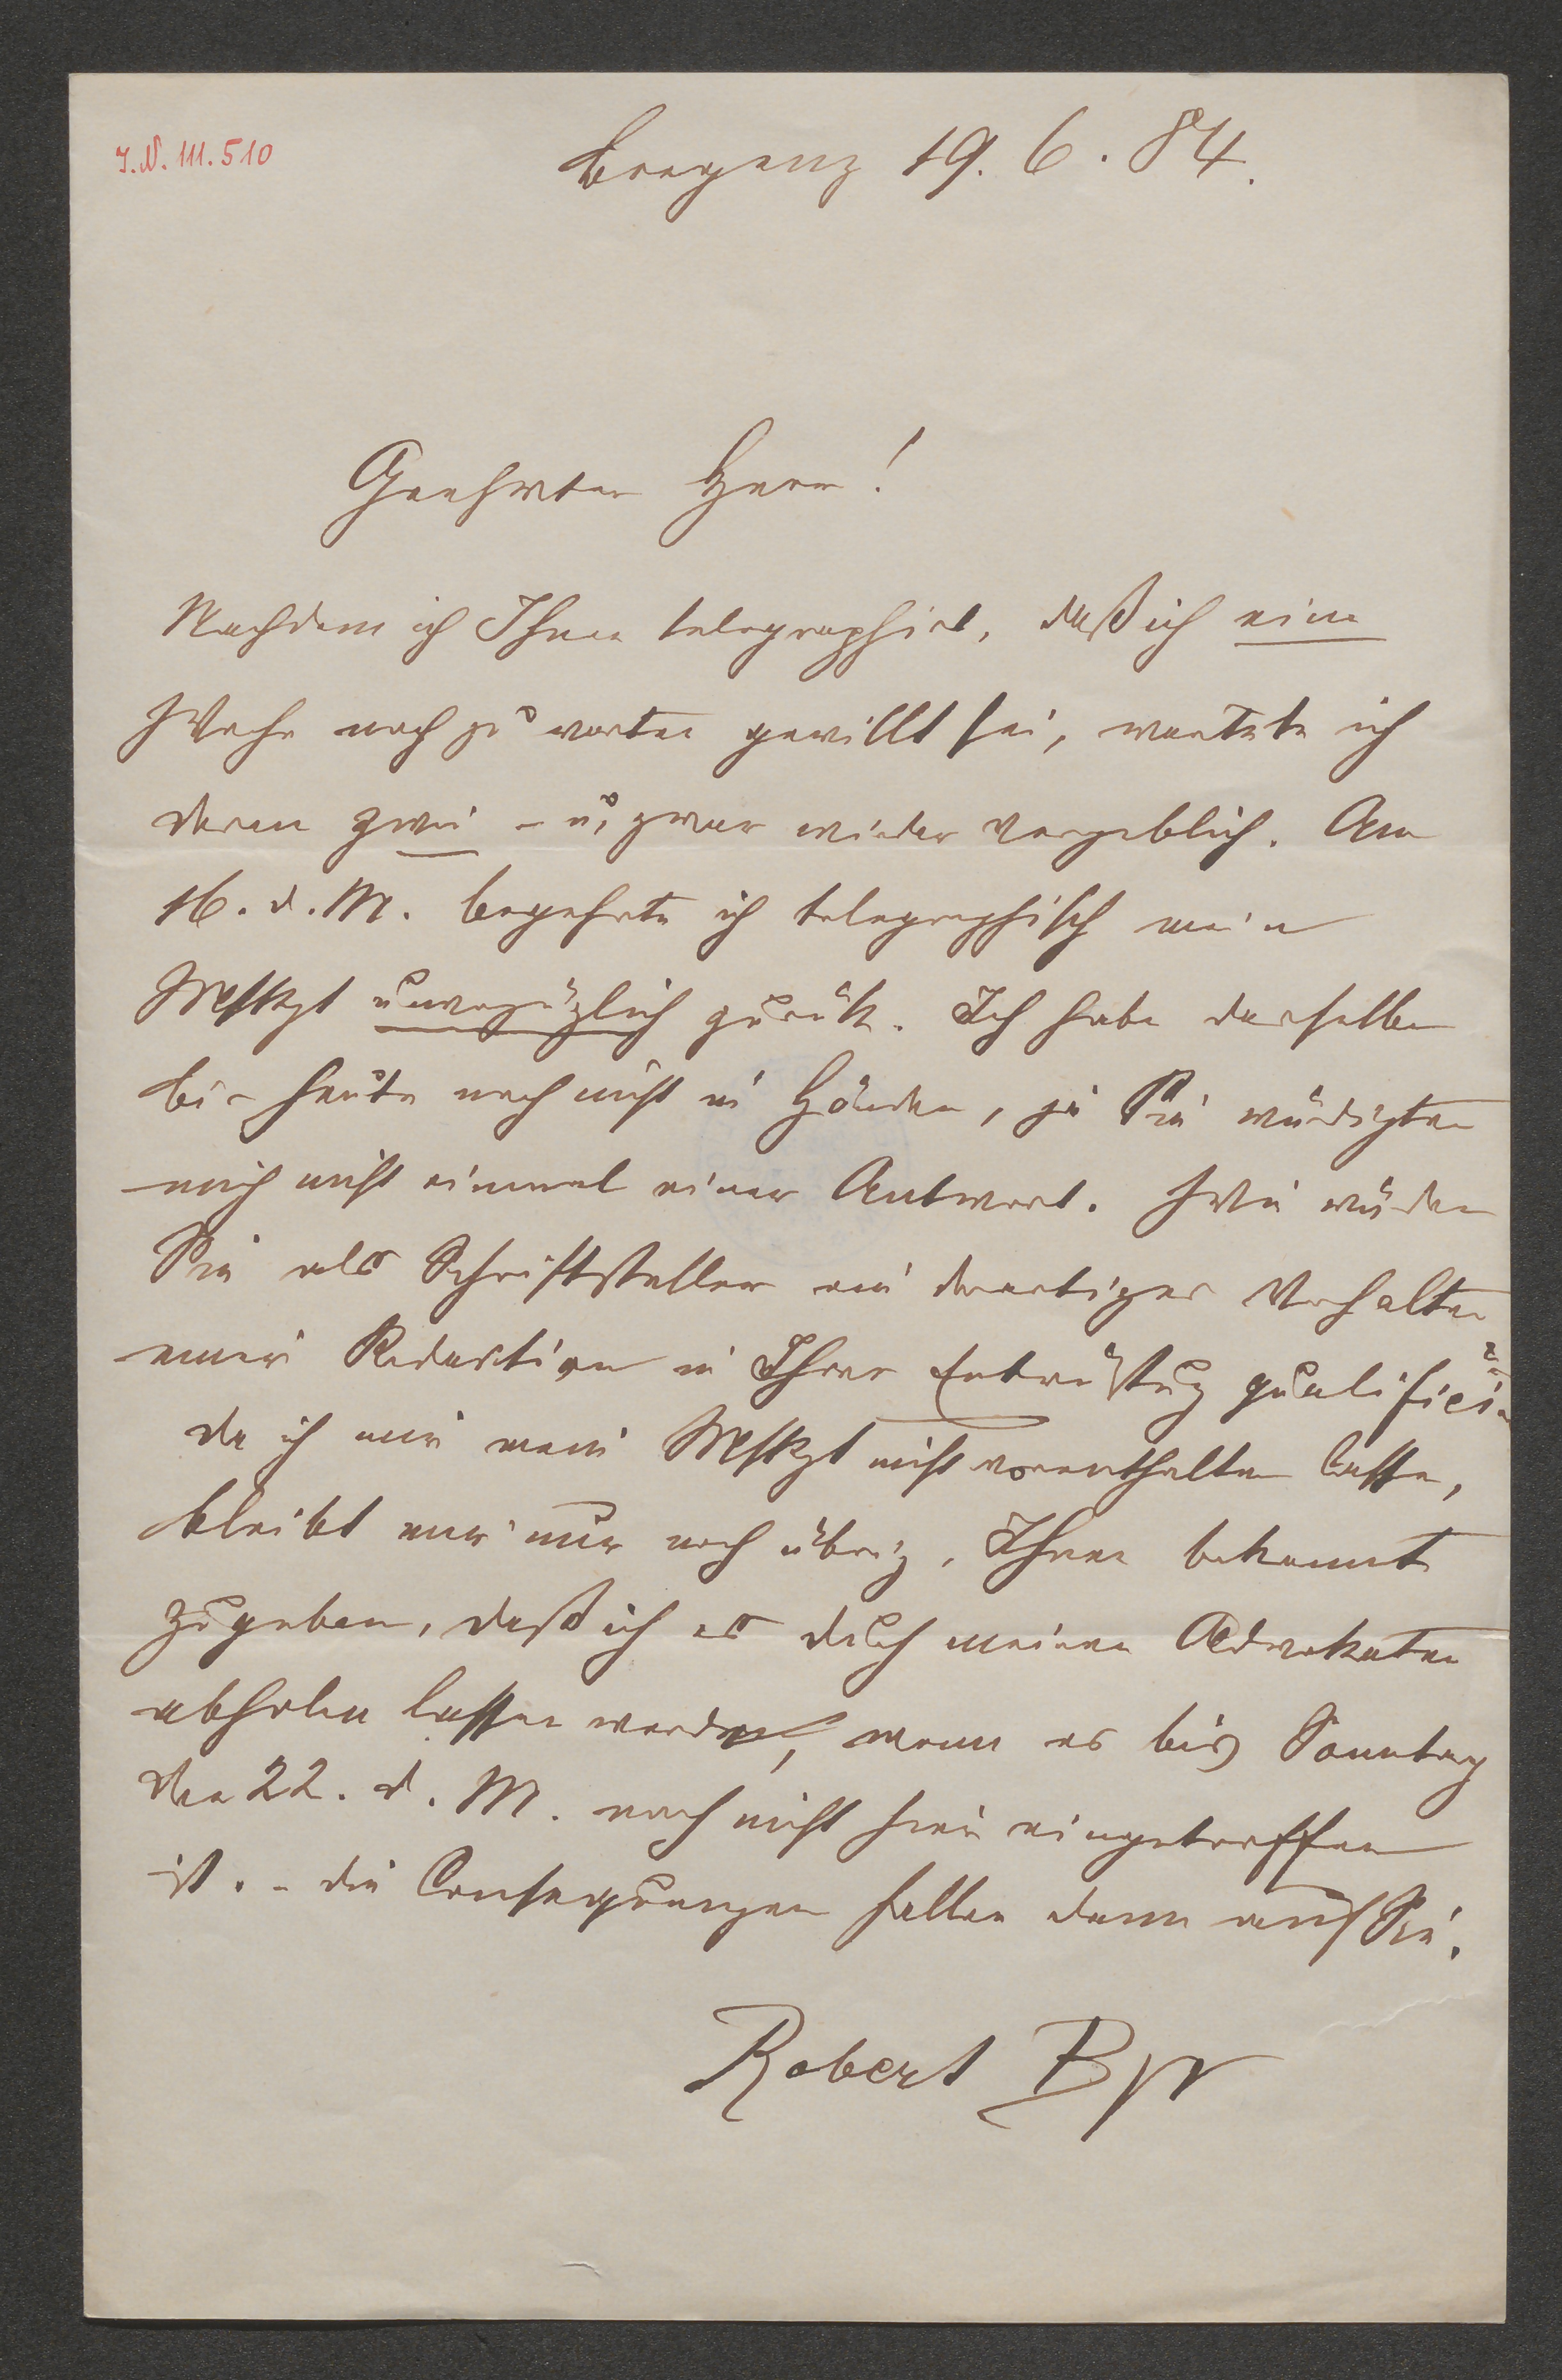 I.N. 111.510
Bregenz 19. 6. 84.
Geehrter Herr!
Nachdem ich Ihnen telegraphiert, daß ich eine
Woche noch zu warten gewillt sei, wartete ich
deren zwei – u. zwar wieder vergeblich. Am
16. d. M. begehrte ich telegraphisch mein
unverzüglich zurük. Ich habe dasselbe
bis heute noch nicht in Händen, ja Sie würdigten
mich nicht einmal einer Antwort. Wie würden
Sie als Schriftsteller ein derartiges Verhalten
einer Redaction in Ihrer Entrüstung qualificiren
da ich mir mein nicht vorenthalten lasse,
bleibt mir nur noch übrig, Ihnen bekannt
zugeben, daß ich es durch meinen Advokaten
abholen lassen werde, wenn es bis Sonntag
den 22. d. M. noch nicht hier eingetroffen
ist. – die Consequenzen fallen dann auf Sie.
Robert Byr